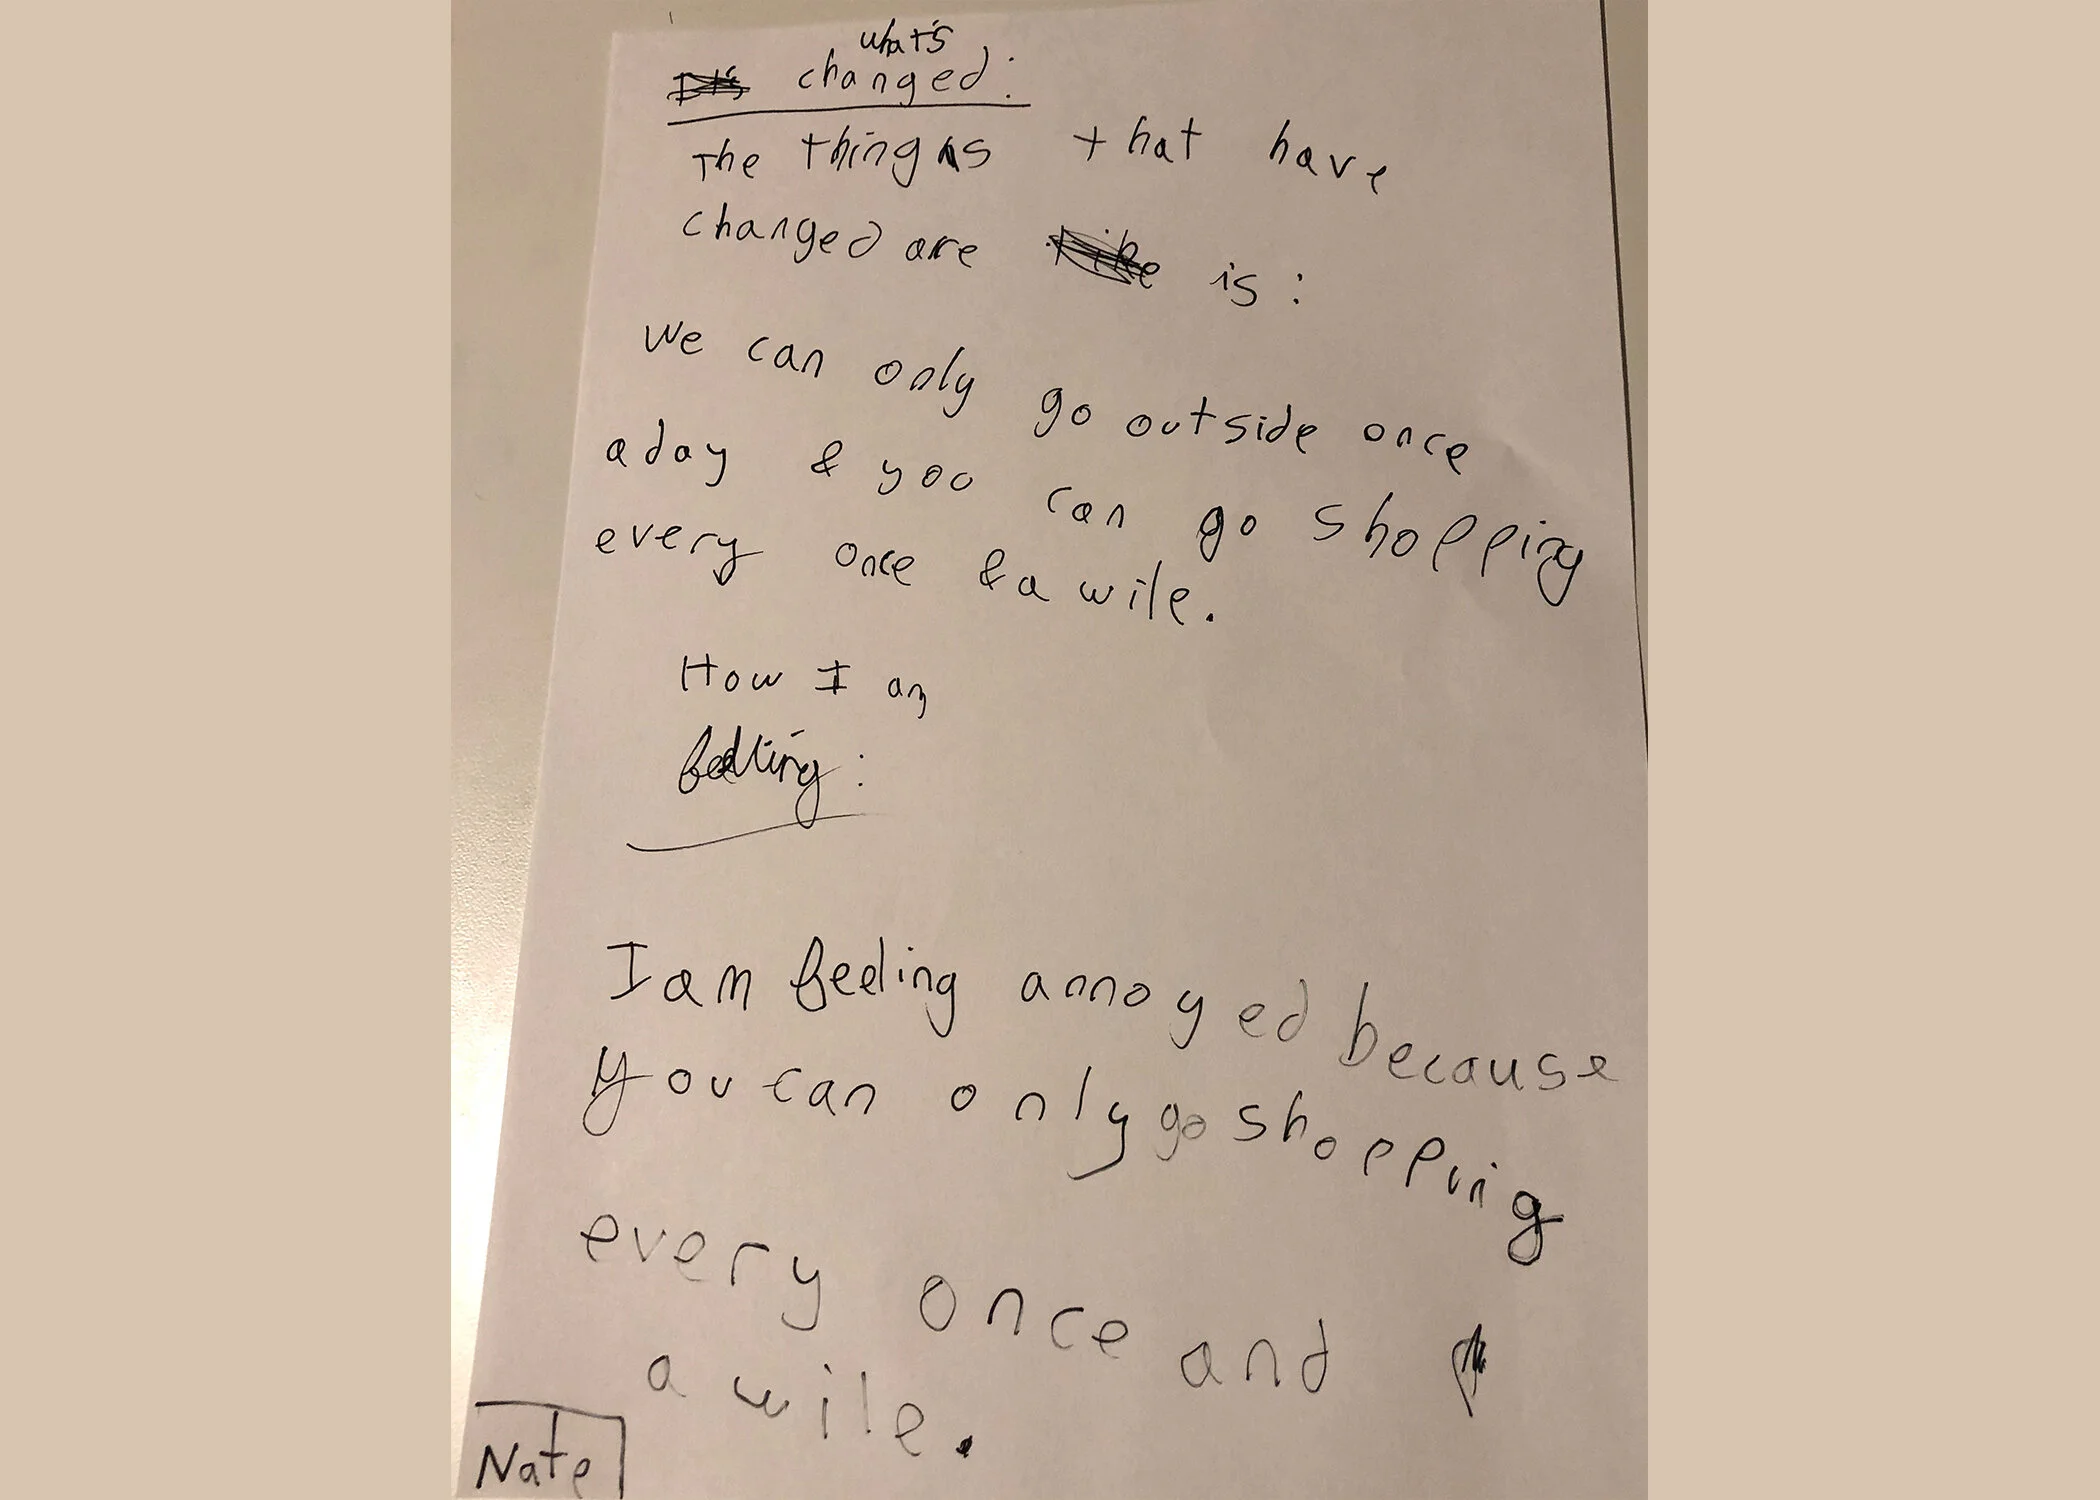 what's
changed:
The things that have
changed are like is:
We can only go outside once
a day & you can go shopping
every once & a wile.
How I am
feelling:
I am feeling annoyed because
you can only go shopping
every once and
a wile.
Nate